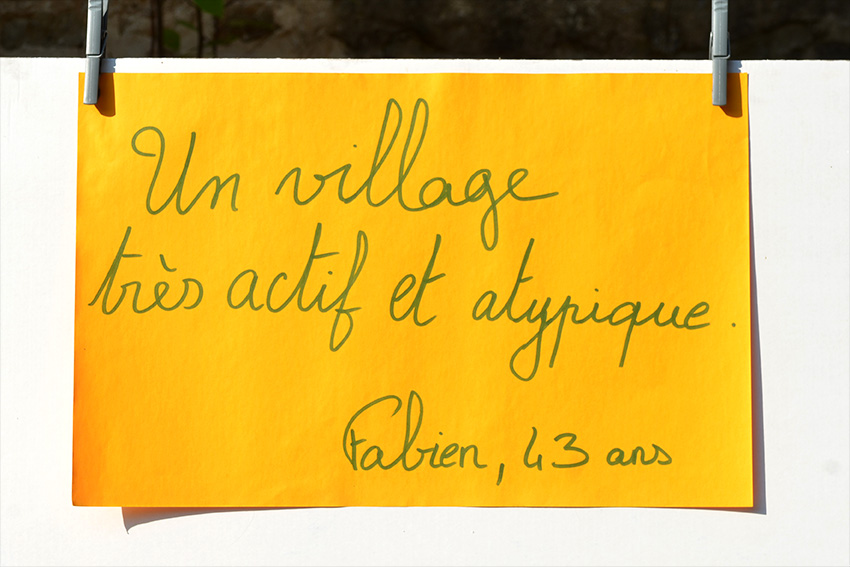 Un village
très actif et atypique.
Fabien, 43 ans